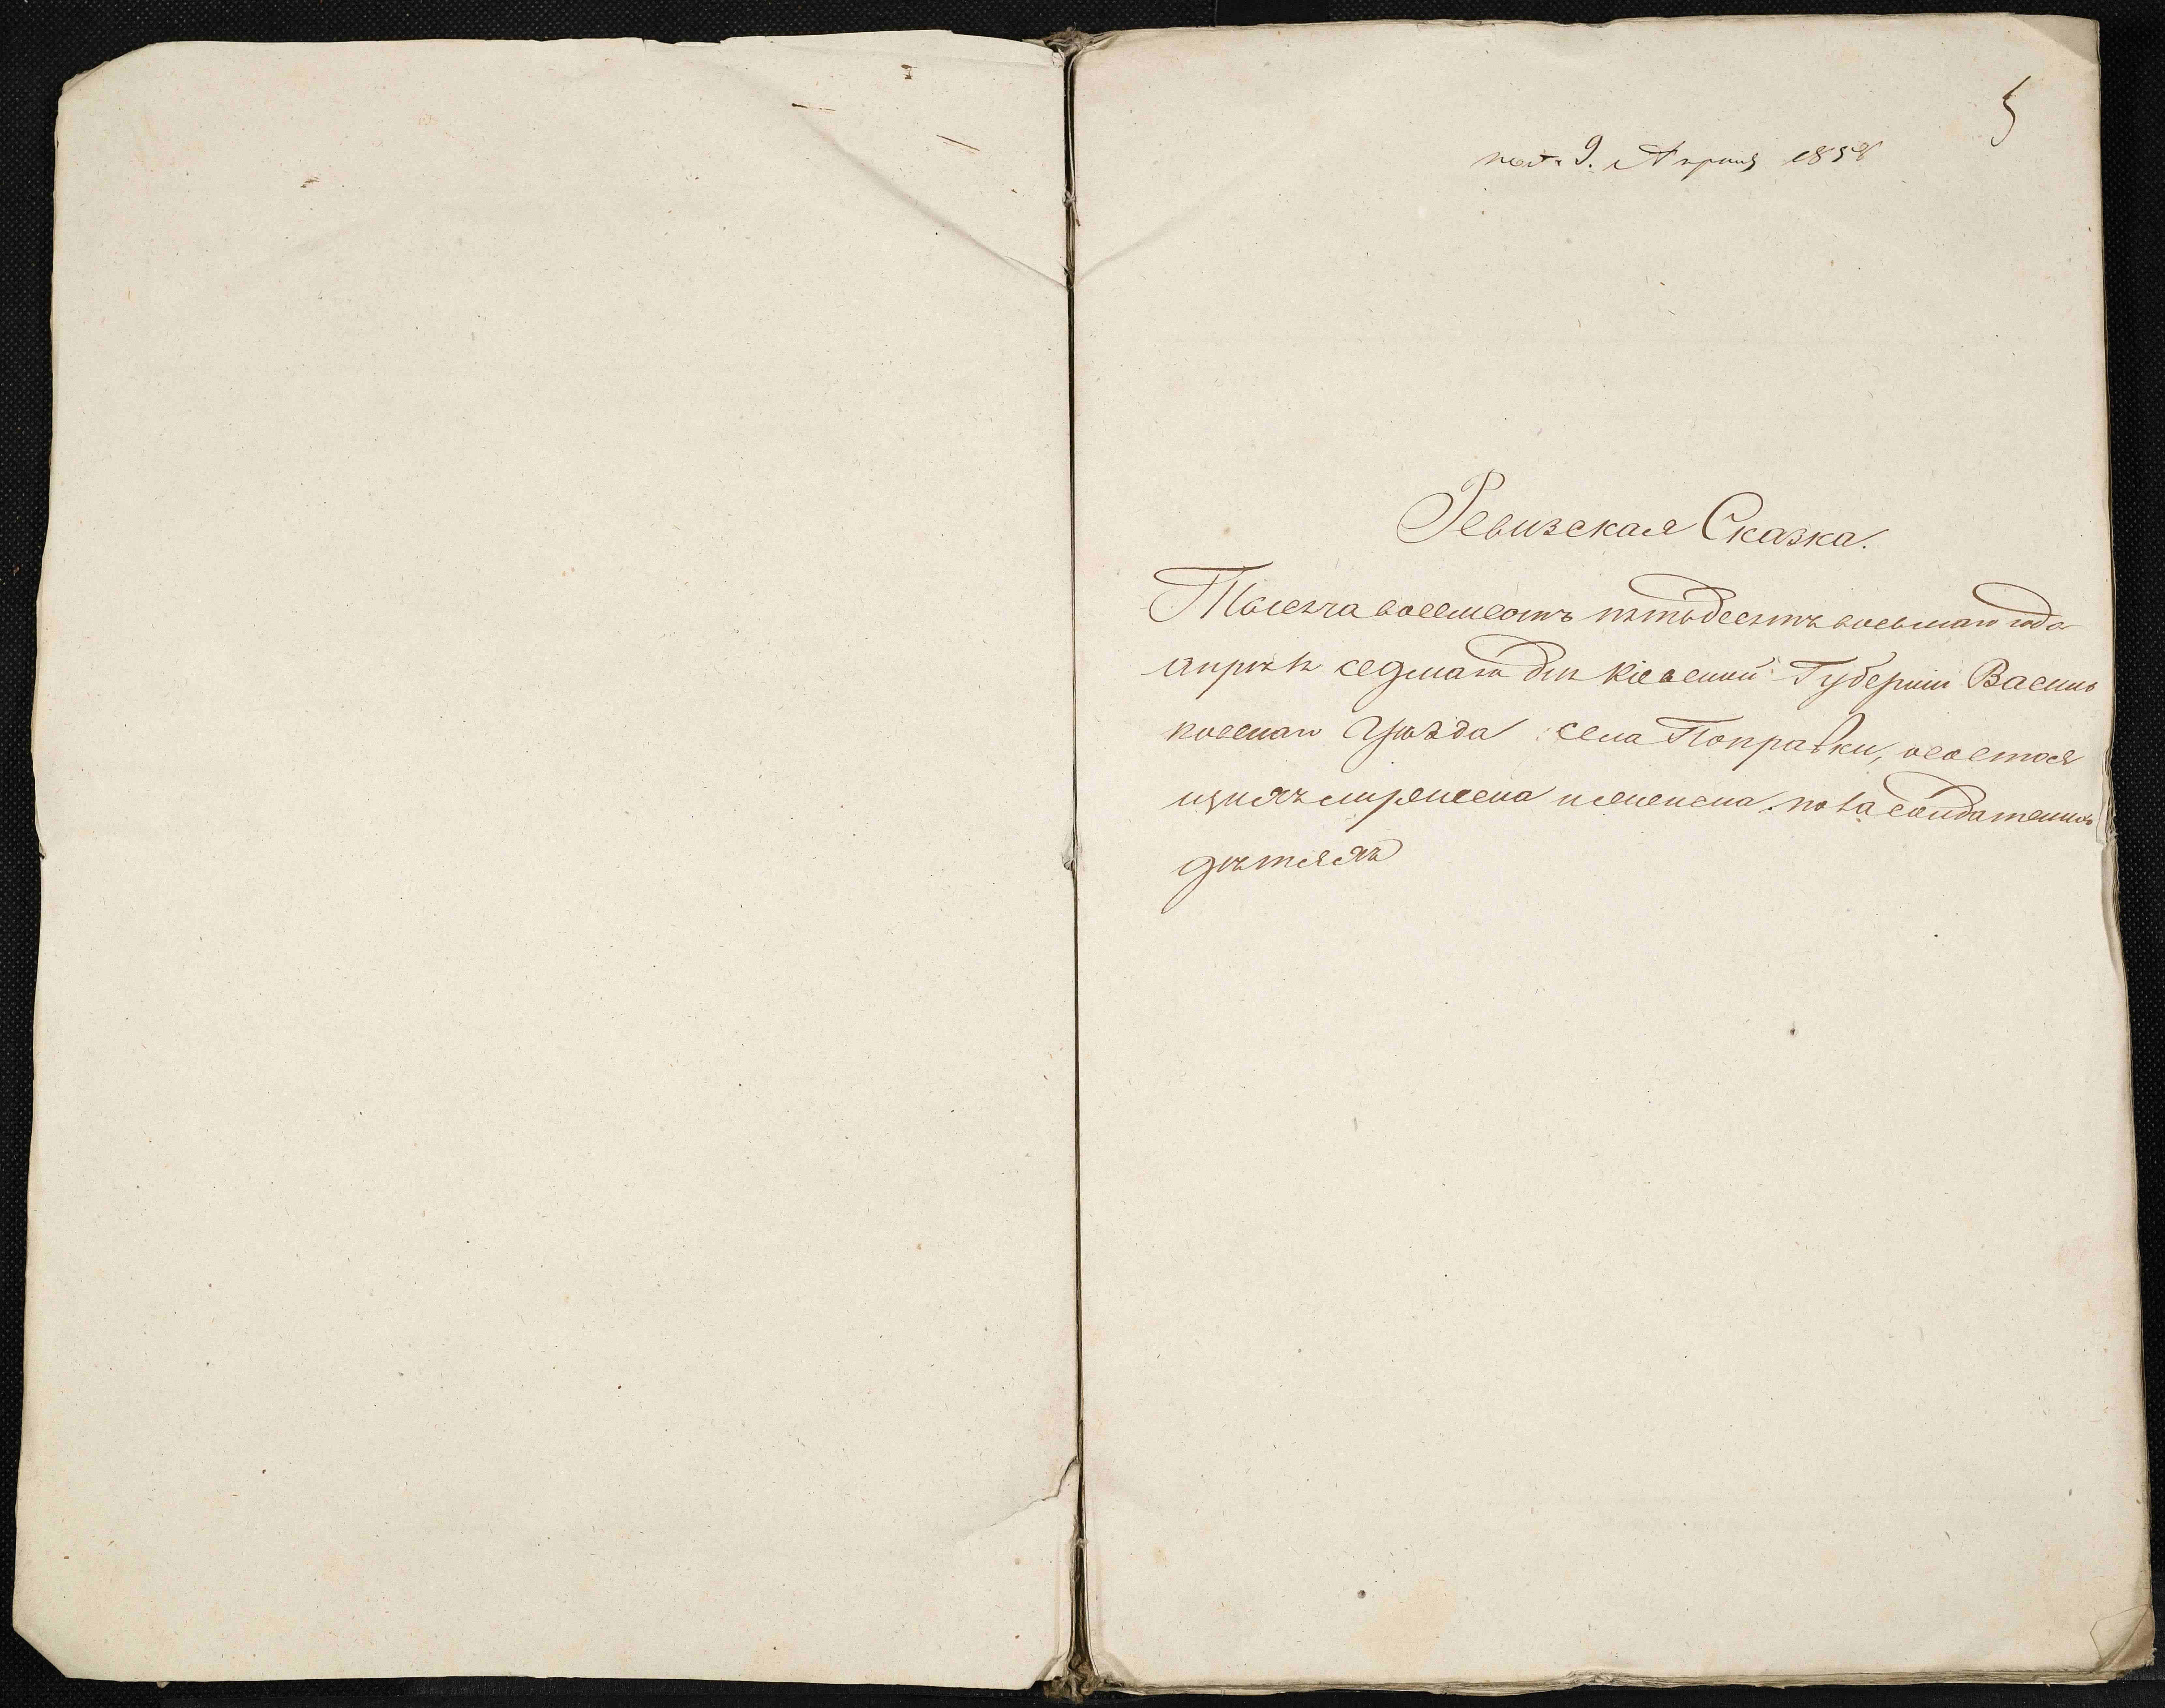 5
пол. 9. Апреля 1858
Ревизская Сказка.
Тысяча восемсотъ пятьдесятъ восьмаго года
апрѣля седмаго дня Кіевской Губерніи Василь
ковскаго Уѣзда села Поправки, о состоя
щихъ мужеска и женска пола солдатскихъ
дѣтяхъ